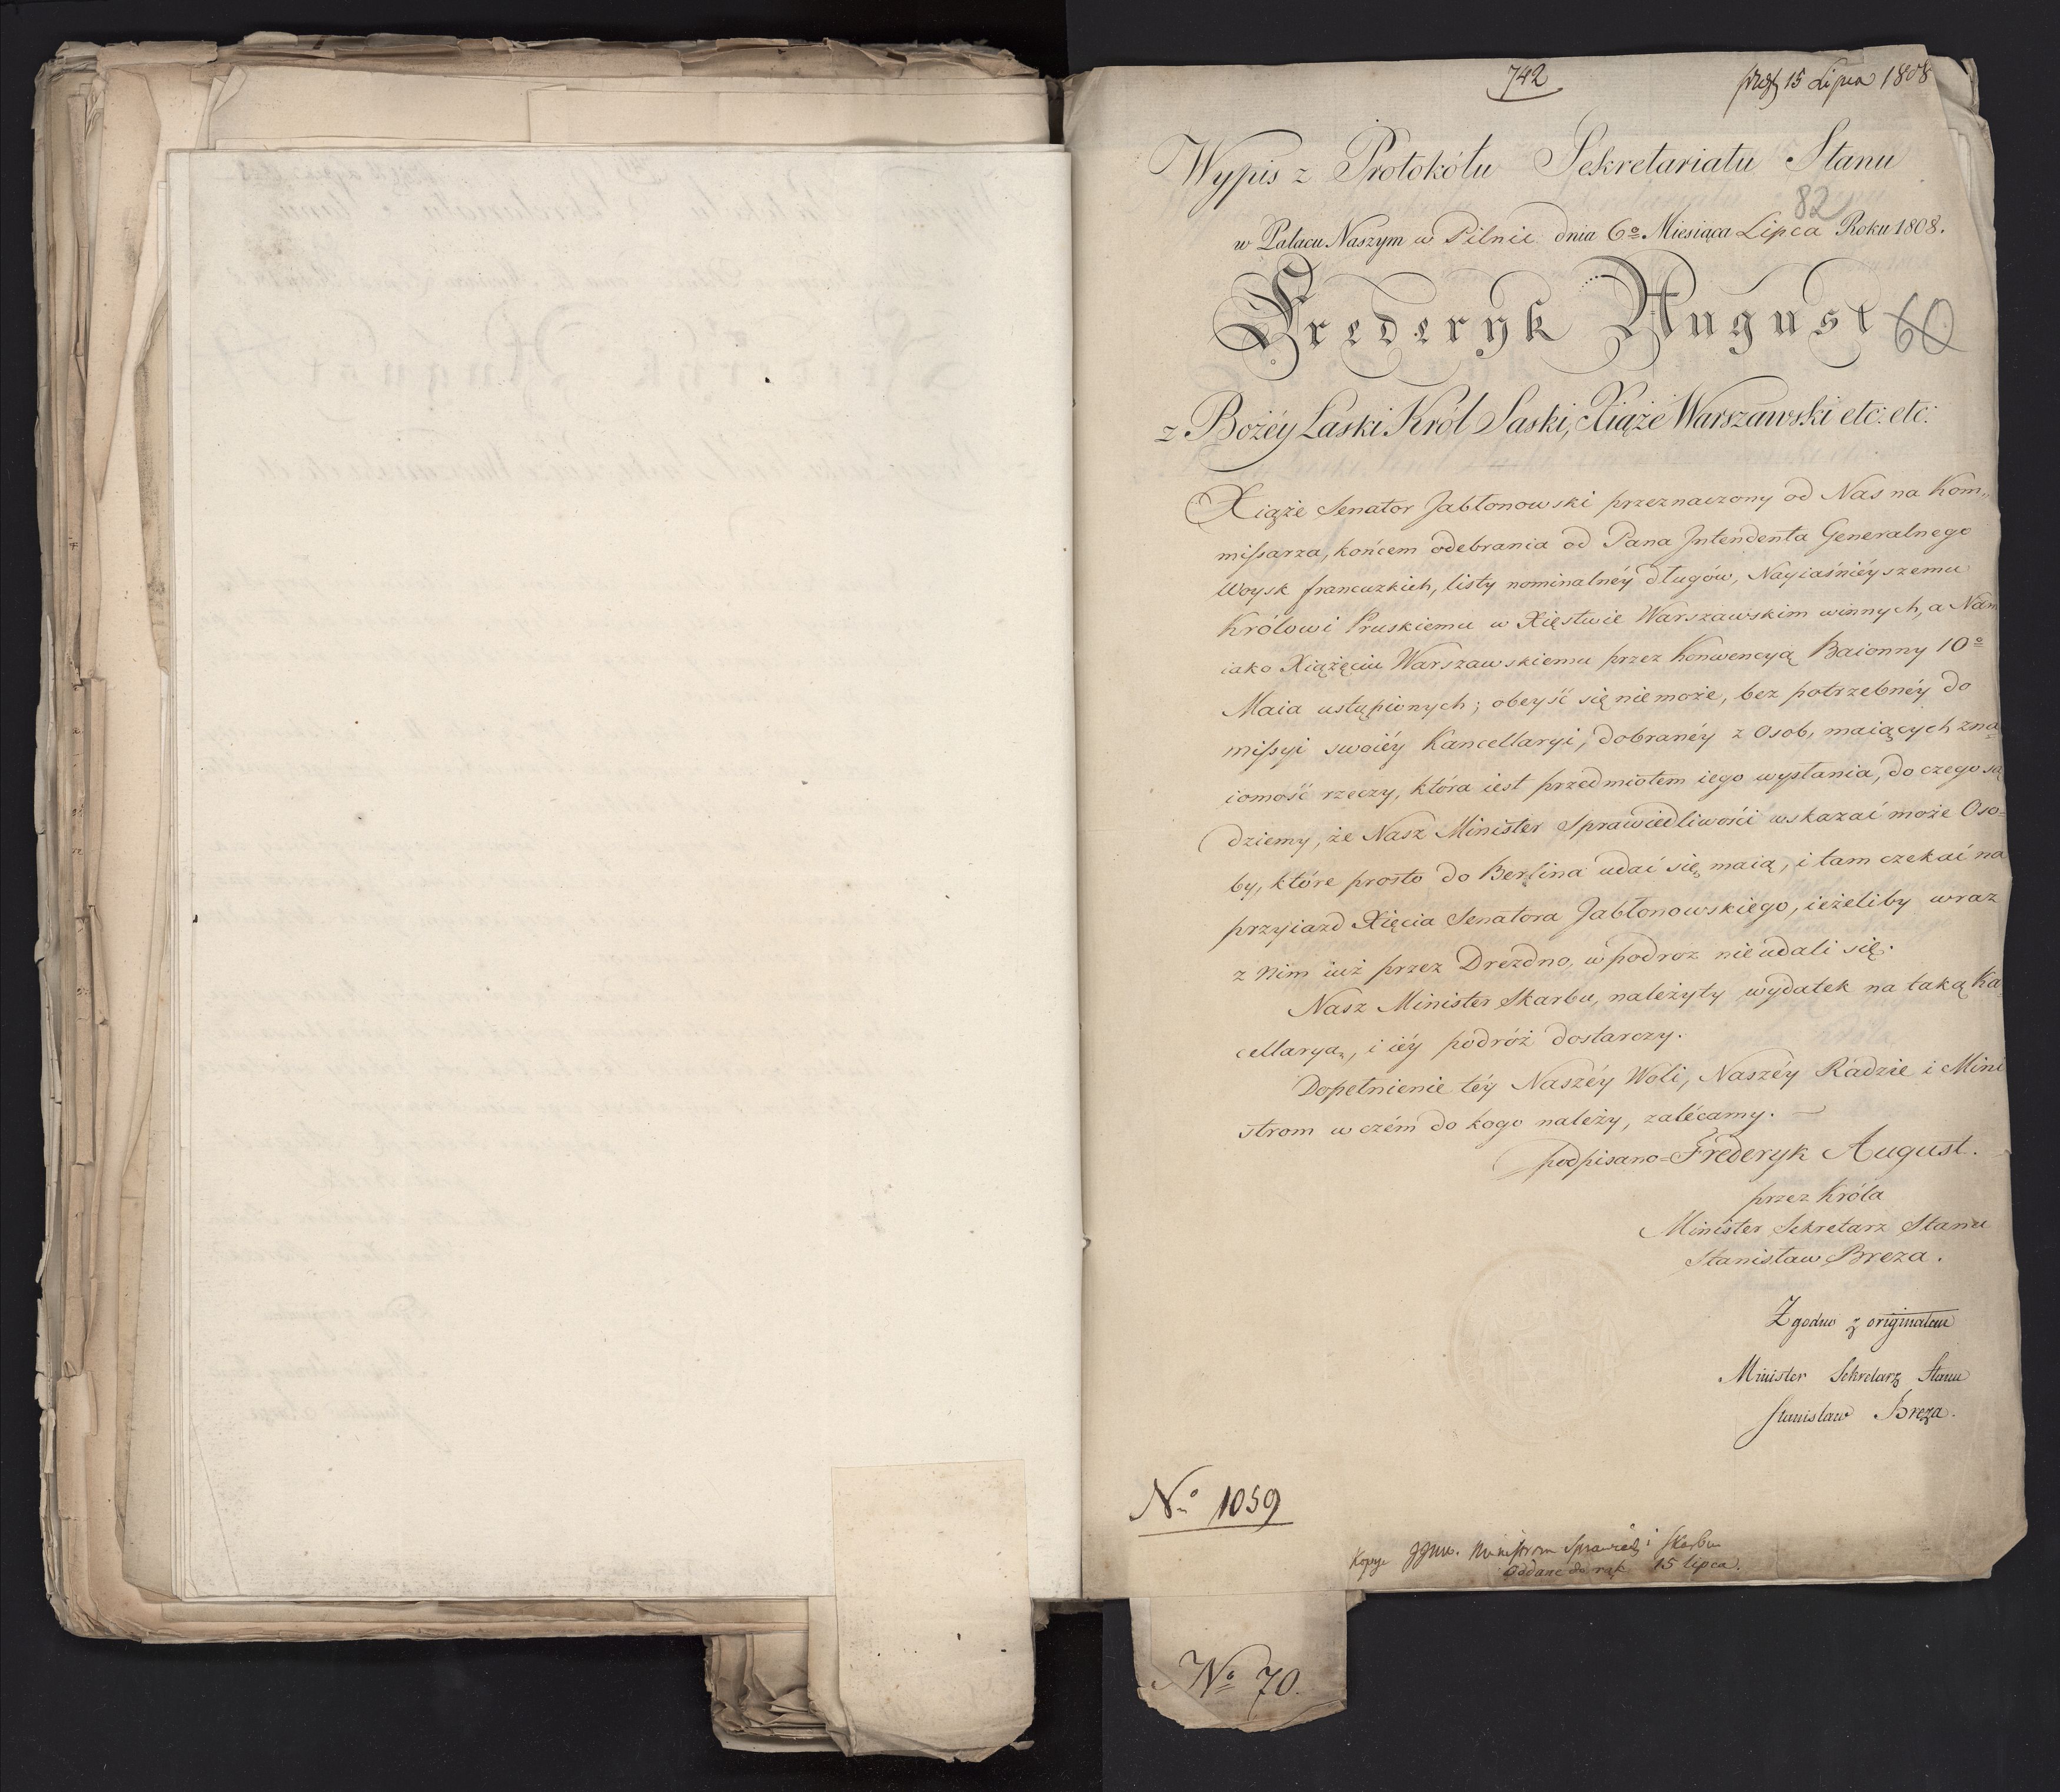 742
15 Lipca 1808
Wypis z Protokółu Sekretariatu Stanu
82
w Pałacu Naszym w Pilnic dnia 6º Miesiąca Lipca Roku 1808.
Frederyk August
60
z Bożéy Łaski Król Saski, Xiąże Warszawski etc: etc:
Xiąże Senator Jabłonowski przeznaczony od Nas na Kom„
missarza, końcem odebrania od Pana Intendenta Generalnego
Woysk francuzkich, listy nominalnéy długów, Nayiaśniéyszemu
Królowi Pruskiemu w Xięstwie Warszawskim winnych, a Nam
iako Xiążęciu Warszawskiemu przez Konwencyą Baionny 10º
Maia ustąpionych; obeyść się nie może, bez potrzebnéy do
missyi swoiéy Kancellaryi, dobranéy z Osob, maiących zna=
iomość rzeczy, która iest przedmiotem iego wysłania, do czego są
dziemy, że Nasz Minister Sprawiedliwości wskazać może Oso=
by, które prosto do Berlina udać się maią, i tam czekać na
przyiazd Xięcia Senatora Jabłonowskiego, ieżeliby wraz
z nim iuż przez Drezdno, w podroz nie udali się.
Nasz Minister Skarbu, należyty wydatek na taką Ka=
cellaryą, i iéy podróż dostarczy.
Dopełnienie téy Naszéy Woli, Naszéy Radzie i Mini
strom w czém do kogo należy, zalécamy. —
podpisano = Frederyk August.
przez Króla
Minister Sekretarz Stanu
Stanisław Breza.
Zgodno z originałem
Minister Sekretarz Stanu
Stanisław Breza.
Nº 1059
Kopije JJWW. Ministrom Sprawied i Skarbu
oddane do rąk 15 lipca.
Nº 70.